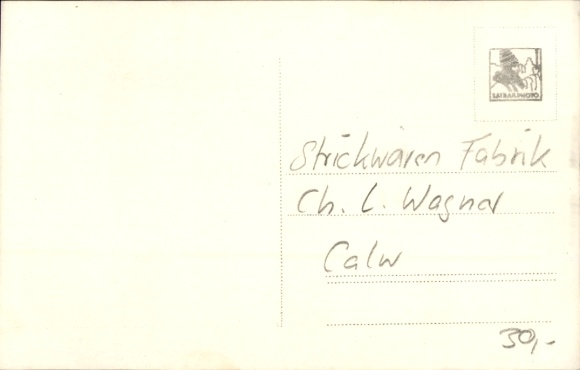 Strickwaren Fabrik
Ch. L. Wagner
Calw
30,-